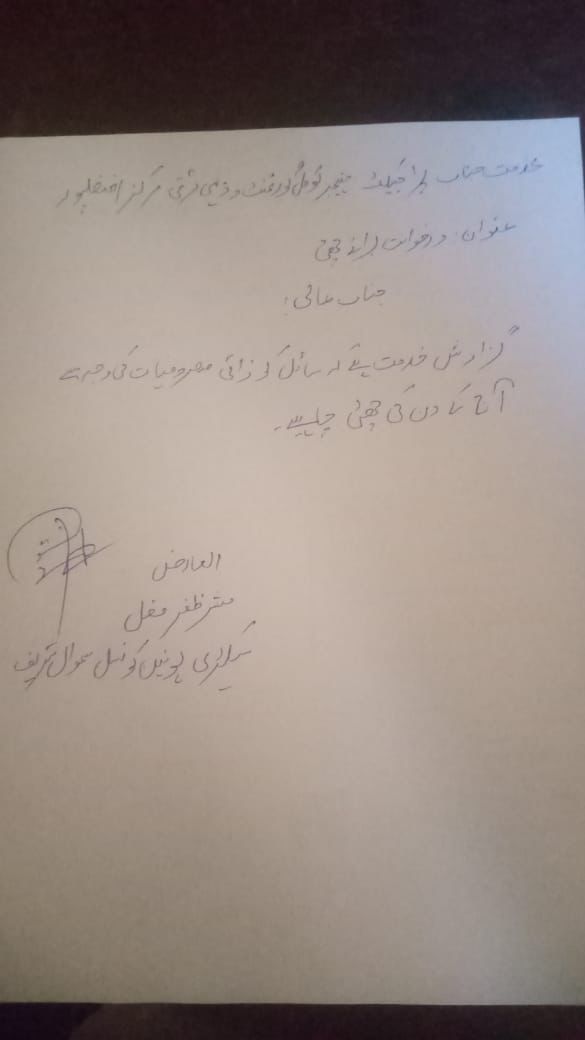 بخدمت جناب پراجیکٹ منیجر لوکل گورنمنٹ و دیہی ترقی مرکز افضلپور
عنوان: درخواست برائے چھٹی
جناب عالی:
گزارش خدمت ہے کہ سائل کو ذاتی مصروفیات کی وجہ سے
آج کے دن کی چھٹی چاہیے۔
العارض
ظفر مغل
سیکرٹری یونین کونسل سموال شریف